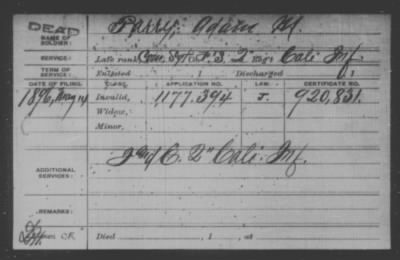 DEAD
NAME OF SOLDIER: Parry, Adam M.
SERVICE: Late rank, Com. Sgt. 3. 2" Regt Cali Inf
TERM OF SERVICE: Enlisted 1 Discharged 1
DATE OF FILING: CLASS. APPLICATION NO. LAW. CERTIFICATE NO.
1896, May 14 Invalid, 1177.394 J. 920,831.
Widow,
Minor,
ADDITIONAL SERVICES: C. 2" Cali. Inf.
REMARKS:
Died , 1 , at